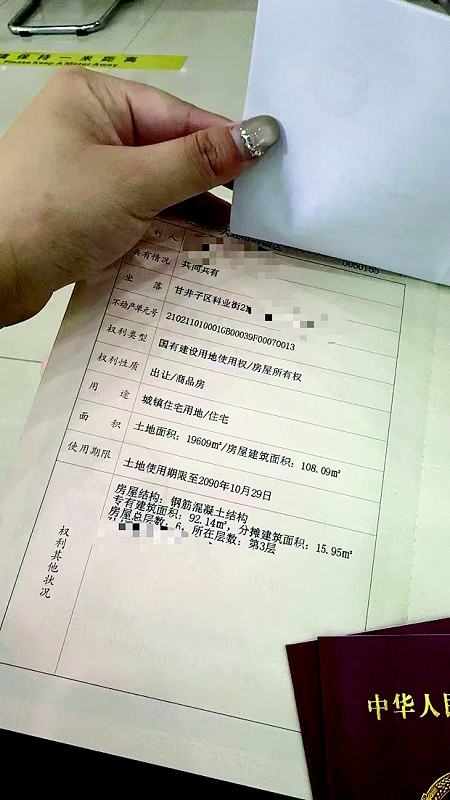 请保持一米距离
Please Keep A Meter Away
利人
0050155
共有情况 共同共有
坐落 甘井子区科业街2
不动产单元号 210211010001GB00039F00070013
权利类型 国有建设用地使用权/房屋所有权
权利性质 出让/商品房
用途 城镇住宅用地/住宅
面积 土地面积：19609㎡/房屋建筑面积：108.09㎡
使用期限 土地使用期限至2090年10月29日
权利其他状况
房屋结构：钢筋混凝土结构
专有建筑面积：92.14㎡，分摊建筑面积：15.95㎡
房屋总层数：6，所在层数：第3层
中华人民